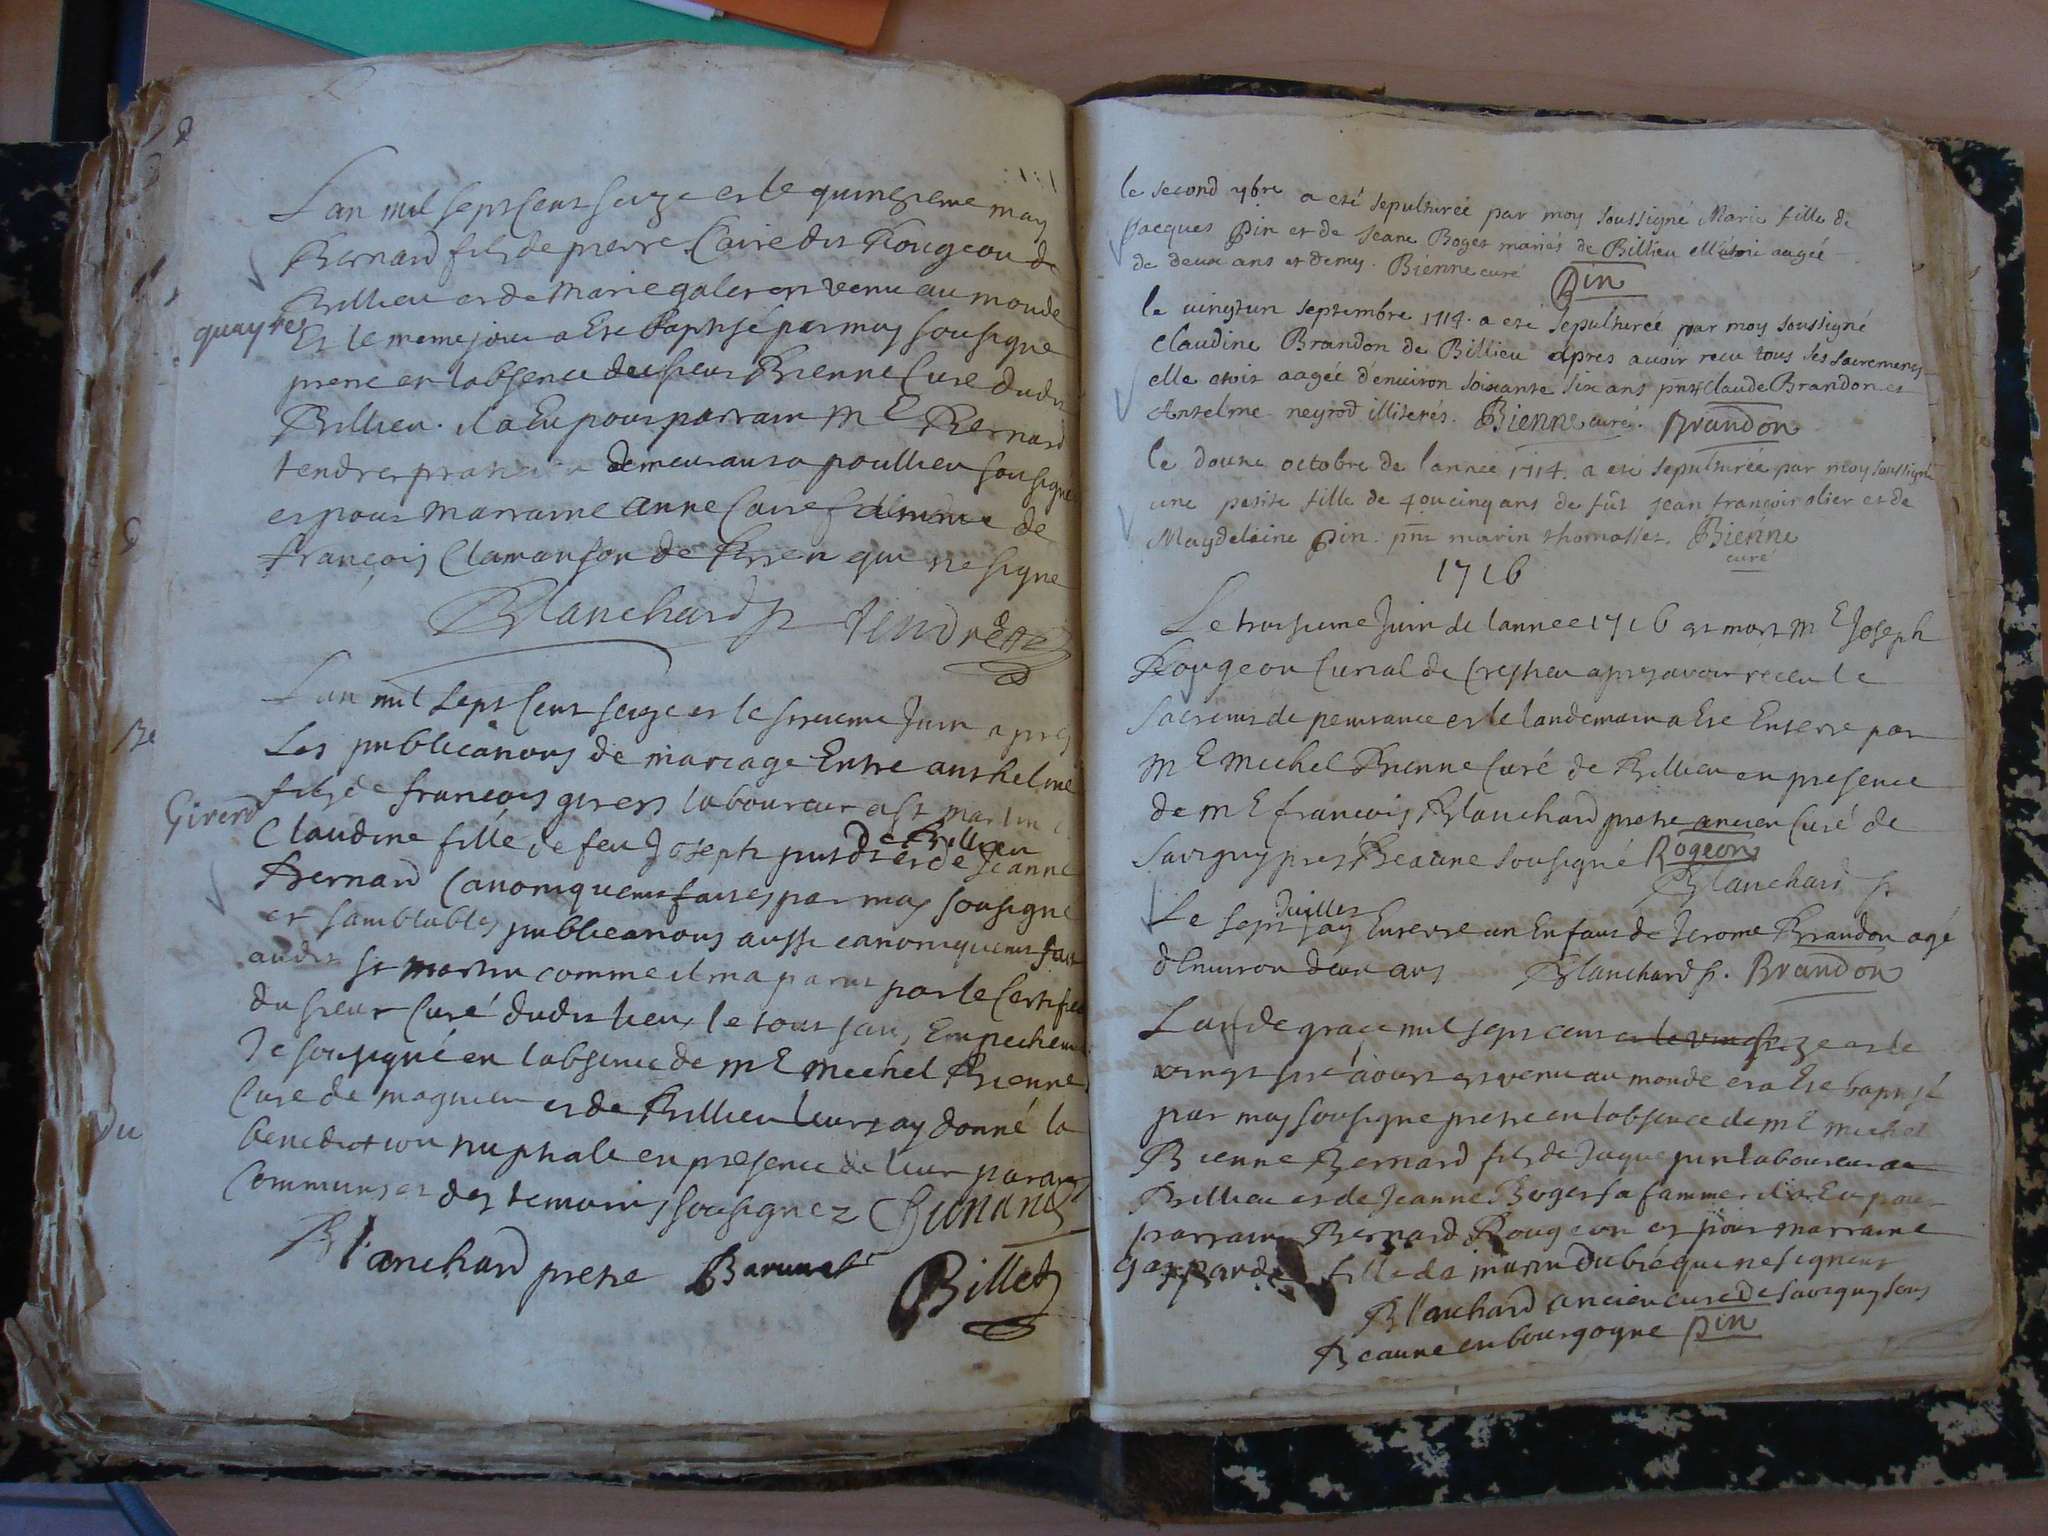 Lan mil sept Cent seize et le quinzieme may
Bernard fils de pierre Claire dit Rougeon de
Billieu et de Marie galer est venu au monde
quaytes
Et le meme jour a Ete Baptisé par moy sousigne
pretre en labsence du sieur Bienne Cure dudit
Billieu. il a Eu pour parrain Me Bernard
tendret demeurant a poullieu sousigne
et pour marraine anne Claire femme de
françois Clamanson de qui ne signe
Blanchard p tendret
Lan mil sept Cent seize et le Juin apres
Les publications de mariage Entre anthelme
fils de francois girerd laboureur a St martin
Girerd
de Billieu
Claudine fille de feu Joseph et de Jeanne
Bernard Canoniquemt faites par moy sousigne
et samblables publications aussi canoniquemt fait
audit st martin comme il ma parut par le Certificat
du sieur Curé dudit lieu, le tout sans Empechemt
Je sousigné en labsence de me michel Bienne
Cure de magnieu et de Billieu leurs ay donné la
benediction nuptiale en presence de leur parans
Communs et des temoins sousignez Dunand
Blanchard pretre Barunet Billet
le second 7bre a eté sepulturée par moy soussigné Marie fille de
Jacques Pin et de Jeane Roget mariés de Billieu aagée
de deux ans et demy. Bienne curé Pin
le vingtun septembre 1714. a eté sepulturée par moy soussigné
Claudine Brandon de Billieu apres avoir recu tous ses sacremens
elle etoit aagée d'environ soixante six ans pnts Claude Brandon et
Antelme neyrod illiterés. Bienne curé. Brandon
le douze octobre de lannée 1714. a eté sepulturée par moy soussigné
une petite fille de 4 ou cinq ans de fût Jean françois olier et de
Maydeleine Pin. pnt marin thomasset. Bienne
curé
1716
Le troisieme Juin de lannee 1716 est mort Me Joseph
Rougeon Curial de Crespieu apres avoir receu le
sacremt de penitance et le landemain a Ete Enterre par
Me Michel Bienne Curé de Billieu en presence
de me francois Blanchard pretre ancien Curé de
Savigny pres Beaune sousigné Rogeon
Blanchard p.
Juillet
Le sept jay Enterre un Enfant de Jerome Brandon agé
d'Environ deux ans Blanchard p. Brandon
Lan de grace mil sept cent et le vingt seize et le
vingt sixe aoust est venu au monde et a Ete baptisé
par moy sousigne pretre en labsence de me michel
Bienne Bernard fils de Jaque pin laboureur au
Billieu et de Jeanne Roger sa famme il a Eu pour
parrain Bernard Rougeon et pour marraine
Gasparde fille de marin Dubré qui ne signent
Blanchard ancien cure de Savigny sous
Beaune en bourgogne Pin